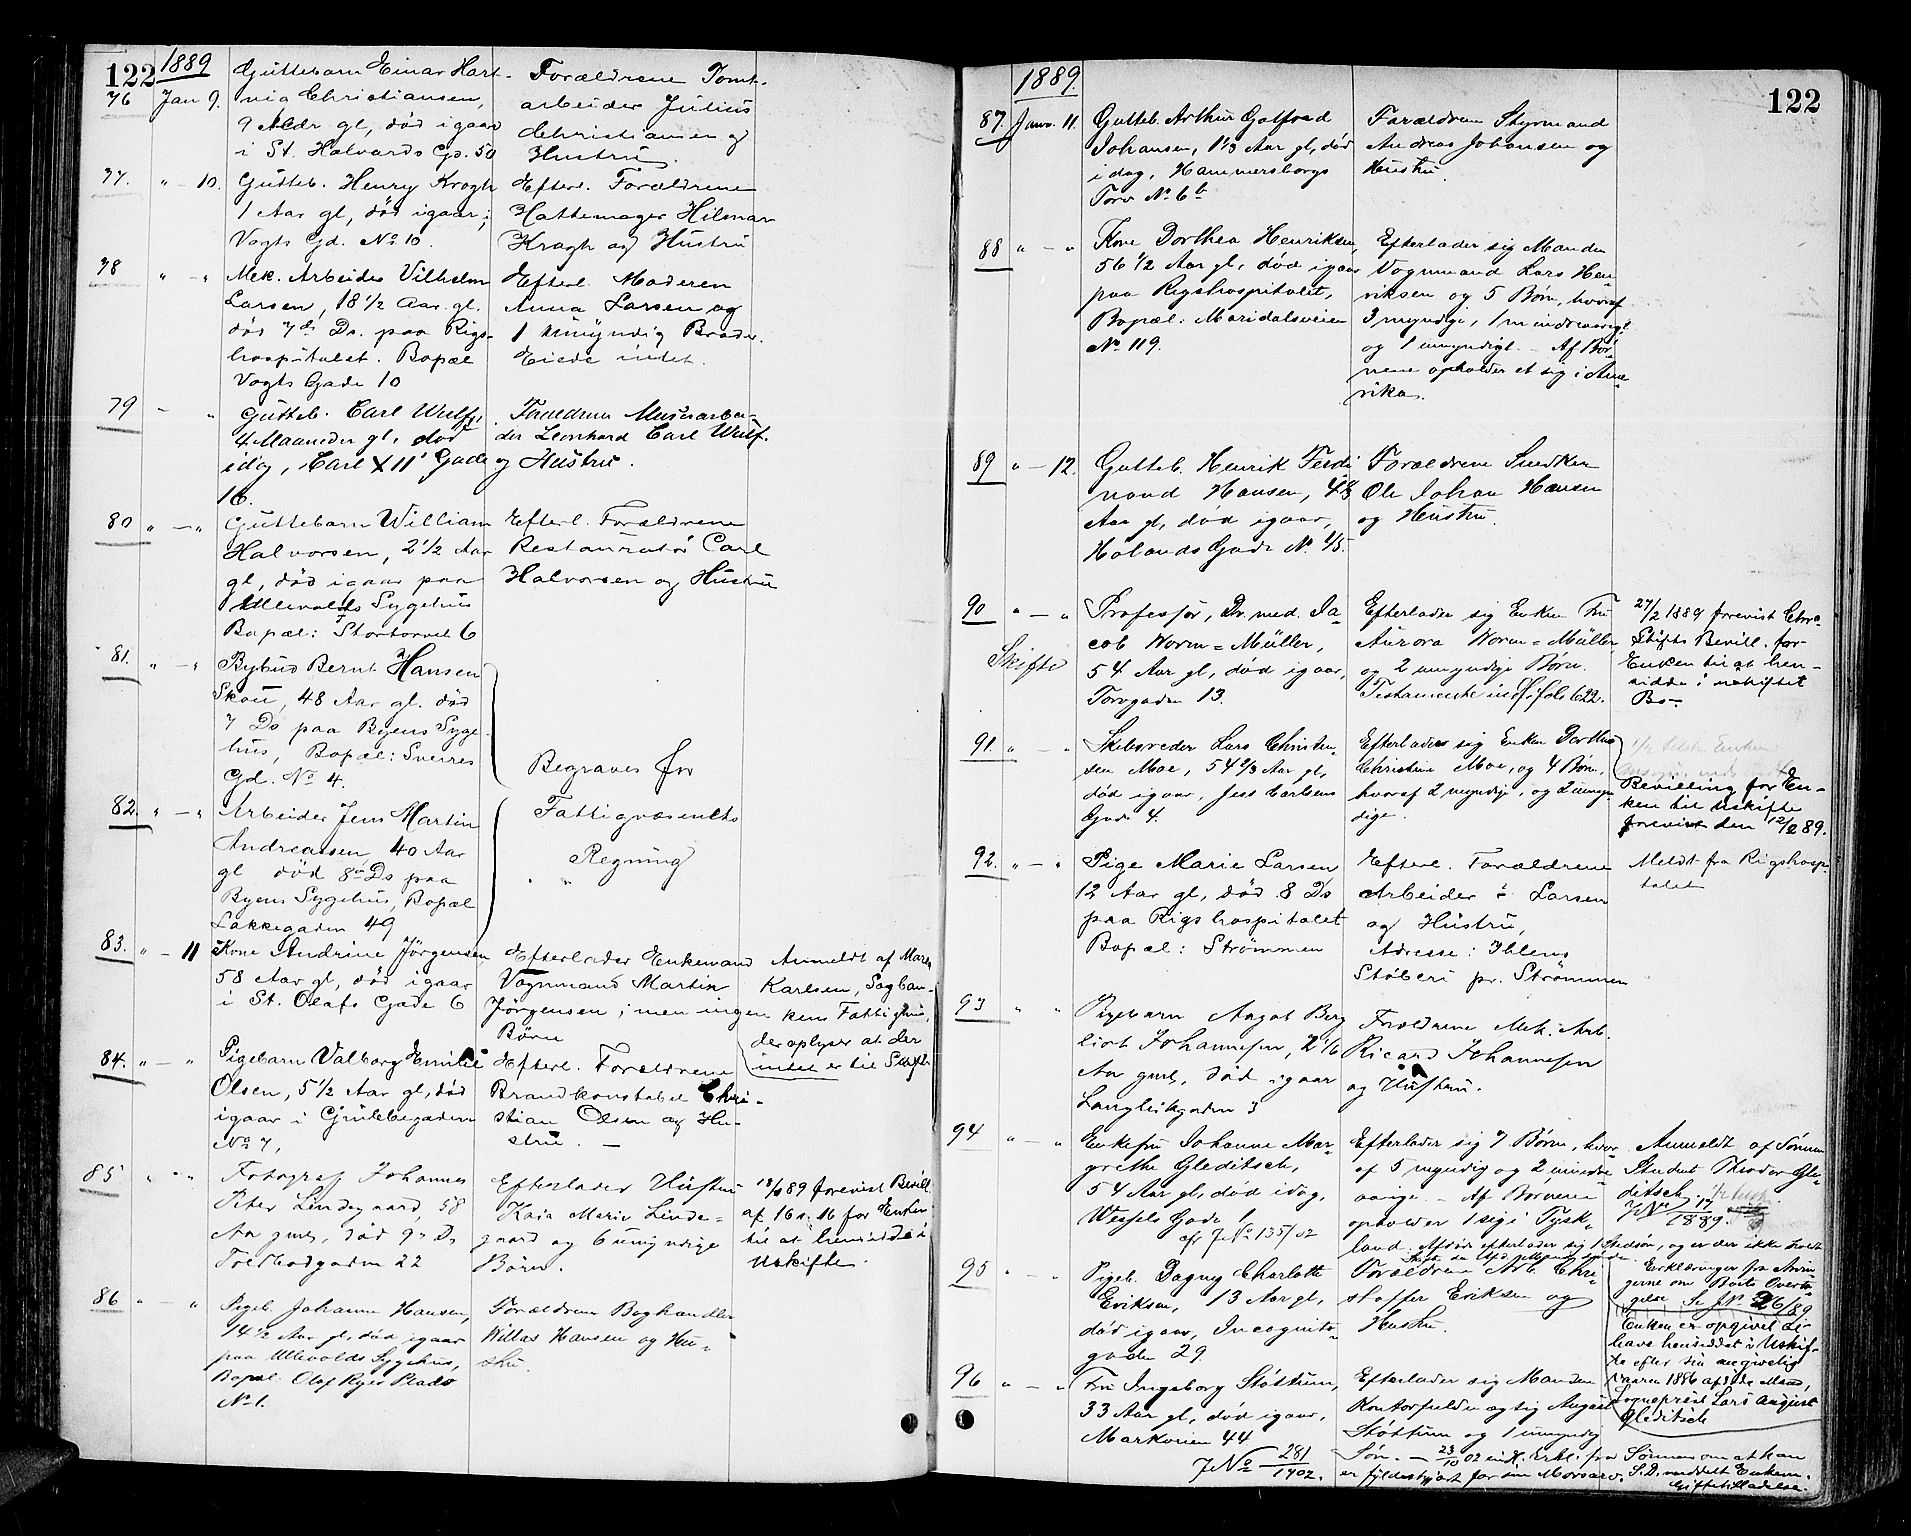 122
1889
76 Jan 9. Guttebarn Einar Hart-
vig Christiansen,
9 Mdr gl, død igaar
i St. Halvards Gd. 50
Forældrene Tomt-
arbeider Julius
Christiansen og
Hustru.
77. " - 10. Gutteb. Henry Krogh
1 Aar gl, død igaar,
Vogts Gd. No 10.
Efterl. Forældrene
Hattemager Hilmar
Krogh og Hustru
78 " - " Mek. Arbeider Vilhelm
Larsen, 18 1/2 Aar gl.
død 7de Ds. paa Rigs-
hospitalet. Bopæl
Vogts Gade 10
Efterl. Moderen
Anna Larsen og
1 umyndig Broder.
Eiede intet.
79 - " Gutteb. Carl Wulf,
4 Maaneder gl, død
idag, Carl XII' Gade
16.
Forældrene Murerarbei-
der Leonhard Carl Wulf
og Hustru.
80 " - " Guttebarn William
Halvorsen, 2 1/2 Aar
gl, død igaar paa
Ullevolds Sygehus
Bopæl: Stortorvet 6
Efterl. Forældrene
Restauratør Carl
Halvorsen og Hustru
81. " - " Bybud Bernt Hansen
Skou, 48 Aar gl. død
7 Ds paa Byens Syge-
hus, Bopæl: Sverres
Gd. No 4.
Begraves for
Fattigvæsenets
Regning
82. " - " Arbeider Jens Martin
Andreassen, 40 Aar
gl død 8de Ds paa
Byens Sygehus, Bopæl
Lakkegaden 49
" "
83. " - 11 Kone Andrine Jörgensen
58 Aar gl, død igaar
i St. Olafs Gade 6
Efterlader Enkemand
Vognmand Martin
Jörgensen; men ingen
Børn
Anmeldt af Maren
Karlsen, Sagban-
kens Fattighus,
der oplyser at der
intet er til Skifte
84. " - " Pigebarn Valborg Emilie
Olsen, 5 1/2 Aar gl, død
igaar i Grübbegaden
No 7,
Efterl. Forældrene
Brandkonstabel Chri-
stian Olsen og Hu-
stru. -
85 " " Fotograf Johannes
Peter Lindegaard, 58
Aar gml, død 9de Ds
Toldbodgaden 22
Efterlader Hustru
Kaia Marie Linde-
gaard og 6 umyndige
Børn.
forevist Bevill.
af 16 s. M for Enken
til at hensidde i
Uskifte.
86 " - " Pigeb. Johanne Hansen,
14 1/2 Aar gl, død igaar
paa Ullevolds Sygehus,
Bopæl. Olaf Ryes Plads
No 1.
Forældrene Boghandler
Hansen og Hu-
stru.
1889.
122
87. Janr. 11. Gutteb. Arthur Gotfred
Johansen, 1 1/3 Aar gl, død
idag, Hammersborgs
Torv No 6b
Forældrene Styrmand
Andreas Johansen og
Hustru.
88 " - " Kone Dorthea Henriksen,
56 1/2 Aar gl, død igaar
paa Rigshospitalet,
Bopæl: Maridalsveien
No 119.
Efterlader sig Manden
Vognmand Lars Hen-
riksen og 5 Børn, hvoraf
3 myndige, 1 mindreaarigt
og 1 umyndigt. - Af Bør-
nene opholder et sig i Ame-
rika.
89 " - 12. Gutteb. Henrik Ferdi-
nand Hansen, 4 2/3
Aar gl, død igaar,
Hølands Gade No 45.
Forældrene Snedker
Ole Johan Hansen
og Hustru.
90 " - " Professor, Dr. med. Ja-
cob Worm-Müller,
54 Aar gl, død igaar,
Torvgaden 13.
Skifte
Efterlader sig Enken Fru
Aurora Worm-Müller
og 2 umyndige Børn.
Testamente indf. i fol. 622.
27/2 1889 forevist Chra
Stifts Bevill. for
Enken til at hen-
sidde i uskiftet
Bo -
91. " - " Skibsreder Lars Christen-
sen Moe, 54 2/3 Aar gl,
død igaar, Jess Carlsens
Gade 4.
Efterlader sig Enken Dorthea
Christine Moe, og 4 Børn,
hvoraf 2 myndige, og 2 umyn-
dige.
Bevilling for En-
ken til Uskifte
forevist den 12/2 89.
92. " - " Pige Marie Larsen
12 Aar gl, død 8 Ds
paa Rigshospitalet
Bopæl: Strømmen
Efterl. Forældrene
Arbeider Larsen
og Hustru,
Adresse: Iblens
Støberi pr. Strømmen
Meldt fra Rigshospi-
talet
93 " " Pigebarn Aagot Berg
liot Johannesen, 2 1/6
Aar gml, død igaar
Langleikgaden 3
Forældrene Mek. Arb.
Ricard Johannesen
og Hustru.
94 " - " Enkefru Johanne Mar-
grethe Gleditsch,
54 Aar gl, død idag,
Wessels Gade 1
cfr JNo 135/02
Efterlader sig 7 Børn, hvor-
af 5 myndig og 2 mindre-
aarige. - Af Børnene
opholder 1 sig i Tysk-
land. Afdøde efterlader sig 1 Stedsøn, og er der ikke holdt
Anmeldt af Sønnen
Student Theodor Gle-
ditsch.
JNo 17/1889.
Erklæringer fra Arvin-
gerne om Boets Overta-
gelse Se JNo 26/89
Enken er opgivet at
have hensiddet i Uskif-
te efter sin angivelig
Vaaren 1886 afdøde Mand,
Sogneprest Lars August
Gleditsch
95 " - " Pigeb. Dagny Charlotte
Eriksen, 13 Aar gl,
død igaar, Incognito-
gaden 29.
Forældrene Arb. Chri-
stoffer Eriksen og
Hustru.
96 " - " Fru Ingeborg Støttum,
33 Aar gl, død igaar,
Markveien 44
JNo 281/1902.
Efterlader sig Manden
Kontorfuldmægtig August
Støttum og 1 umyndig
Søn. - 23/10 02 indk. Erkl. fra Sønnen om at han
er fyldestgjort for sin Mørsarv. S.D. meddelt Enkem.
Giftetilladelse.